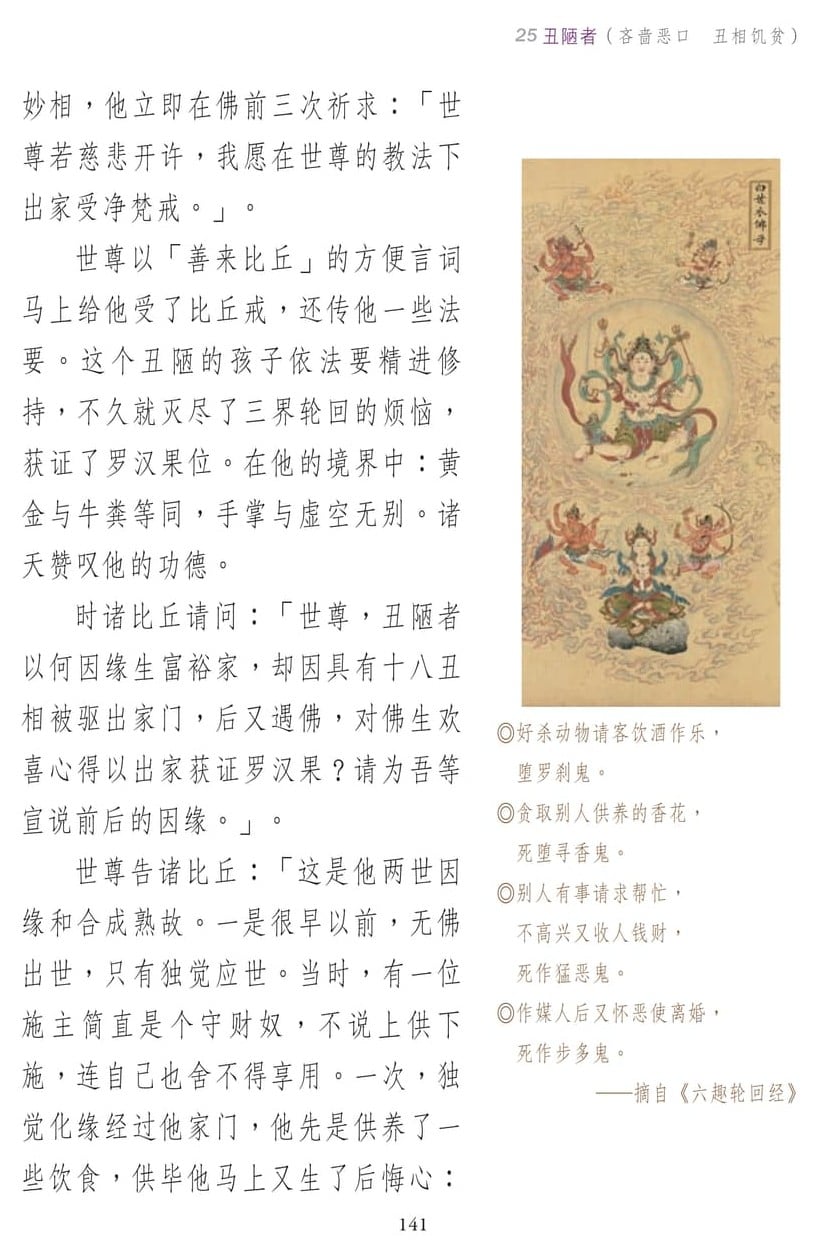 25 丑陋者（吝啬恶口　丑相饥贫）
妙相，他立即在佛前三次祈求：「世
尊若慈悲开许，我愿在世尊的教法下
出家受净梵戒。」。
世尊以「善来比丘」的方便言词
马上给他受了比丘戒，还传他一些法
要。这个丑陋的孩子依法要精进修
持，不久就灭尽了三界轮回的烦恼，
获证了罗汉果位。在他的境界中：黄
金与牛粪等同，手掌与虚空无别。诸
天赞叹他的功德。
时诸比丘请问：「世尊，丑陋者
以何因缘生富裕家，却因具有十八丑
相被驱出家门，后又遇佛，对佛生欢
喜心得以出家获证罗汉果？请为吾等
宣说前后的因缘。」。
世尊告诸比丘：「这是他两世因
缘和合成熟故。一是很早以前，无佛
出世，只有独觉应世。当时，有一位
施主简直是个守财奴，不说上供下
施，连自己也舍不得享用。一次，独
觉化缘经过他家门，他先是供养了一
些饮食，供毕他马上又生了后悔心：
白世衣佛母
◎好杀动物请客饮酒作乐，
堕罗刹鬼。
◎贪取别人供养的香花，
死堕寻香鬼。
◎别人有事请求帮忙，
不高兴又收人钱财，
死作猛恶鬼。
◎作媒人后又怀恶使离婚，
死作步多鬼。
——摘自《六趣轮回经》
141